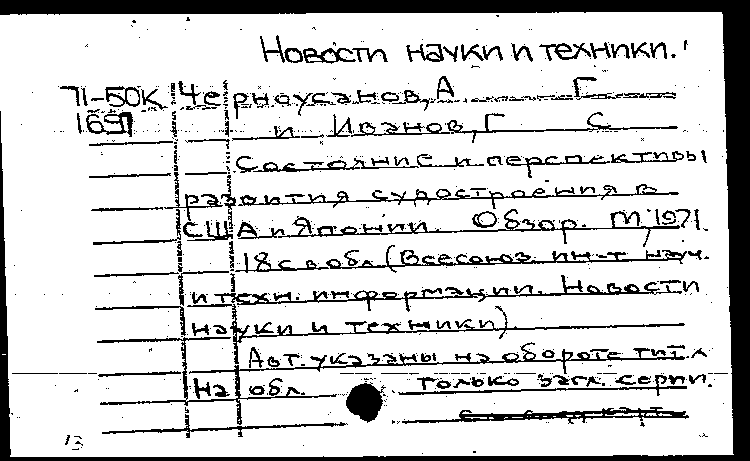 Новости науки и техники.
71-50К Черноусанов, А Г
1697 и Иванов, Г С
Состояние и перспективы
развития судостроения в
США и Японии. Обзор. М, 1971.
18 с в обл (Всесоюз. ин-т науч.
и техн. информации. Новости
науки и техники).
Авт. указаны на обороте тит л
На обл. только загл. серии.
13